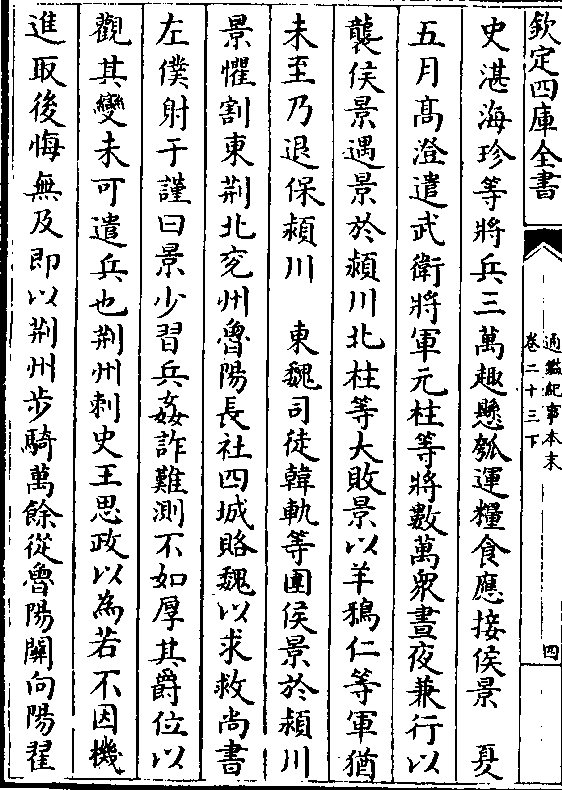 欽定四庫全書
通鑑紀事本末
卷二十三下
四
史湛海珍等將兵三萬趣懸瓠運糧食應接侯景　夏
五月髙澄遣武衛將軍元柱等將數萬衆晝夜兼行以
襲侯景遇景於潁川北柱等大敗景以羊鵶仁等軍猶
未至乃退保潁川　東魏司徒韓軌等圍侯景於潁川
景懼割東荆北兖州魯陽長社四城賂魏以求救尚書
左僕射于謹曰景少習兵姦詐難測不如厚其爵位以
觀其變未可遣兵也荆州刺史王思政以為若不因機
進取後悔無及即以荆州步騎萬餘從魯陽闗向陽翟